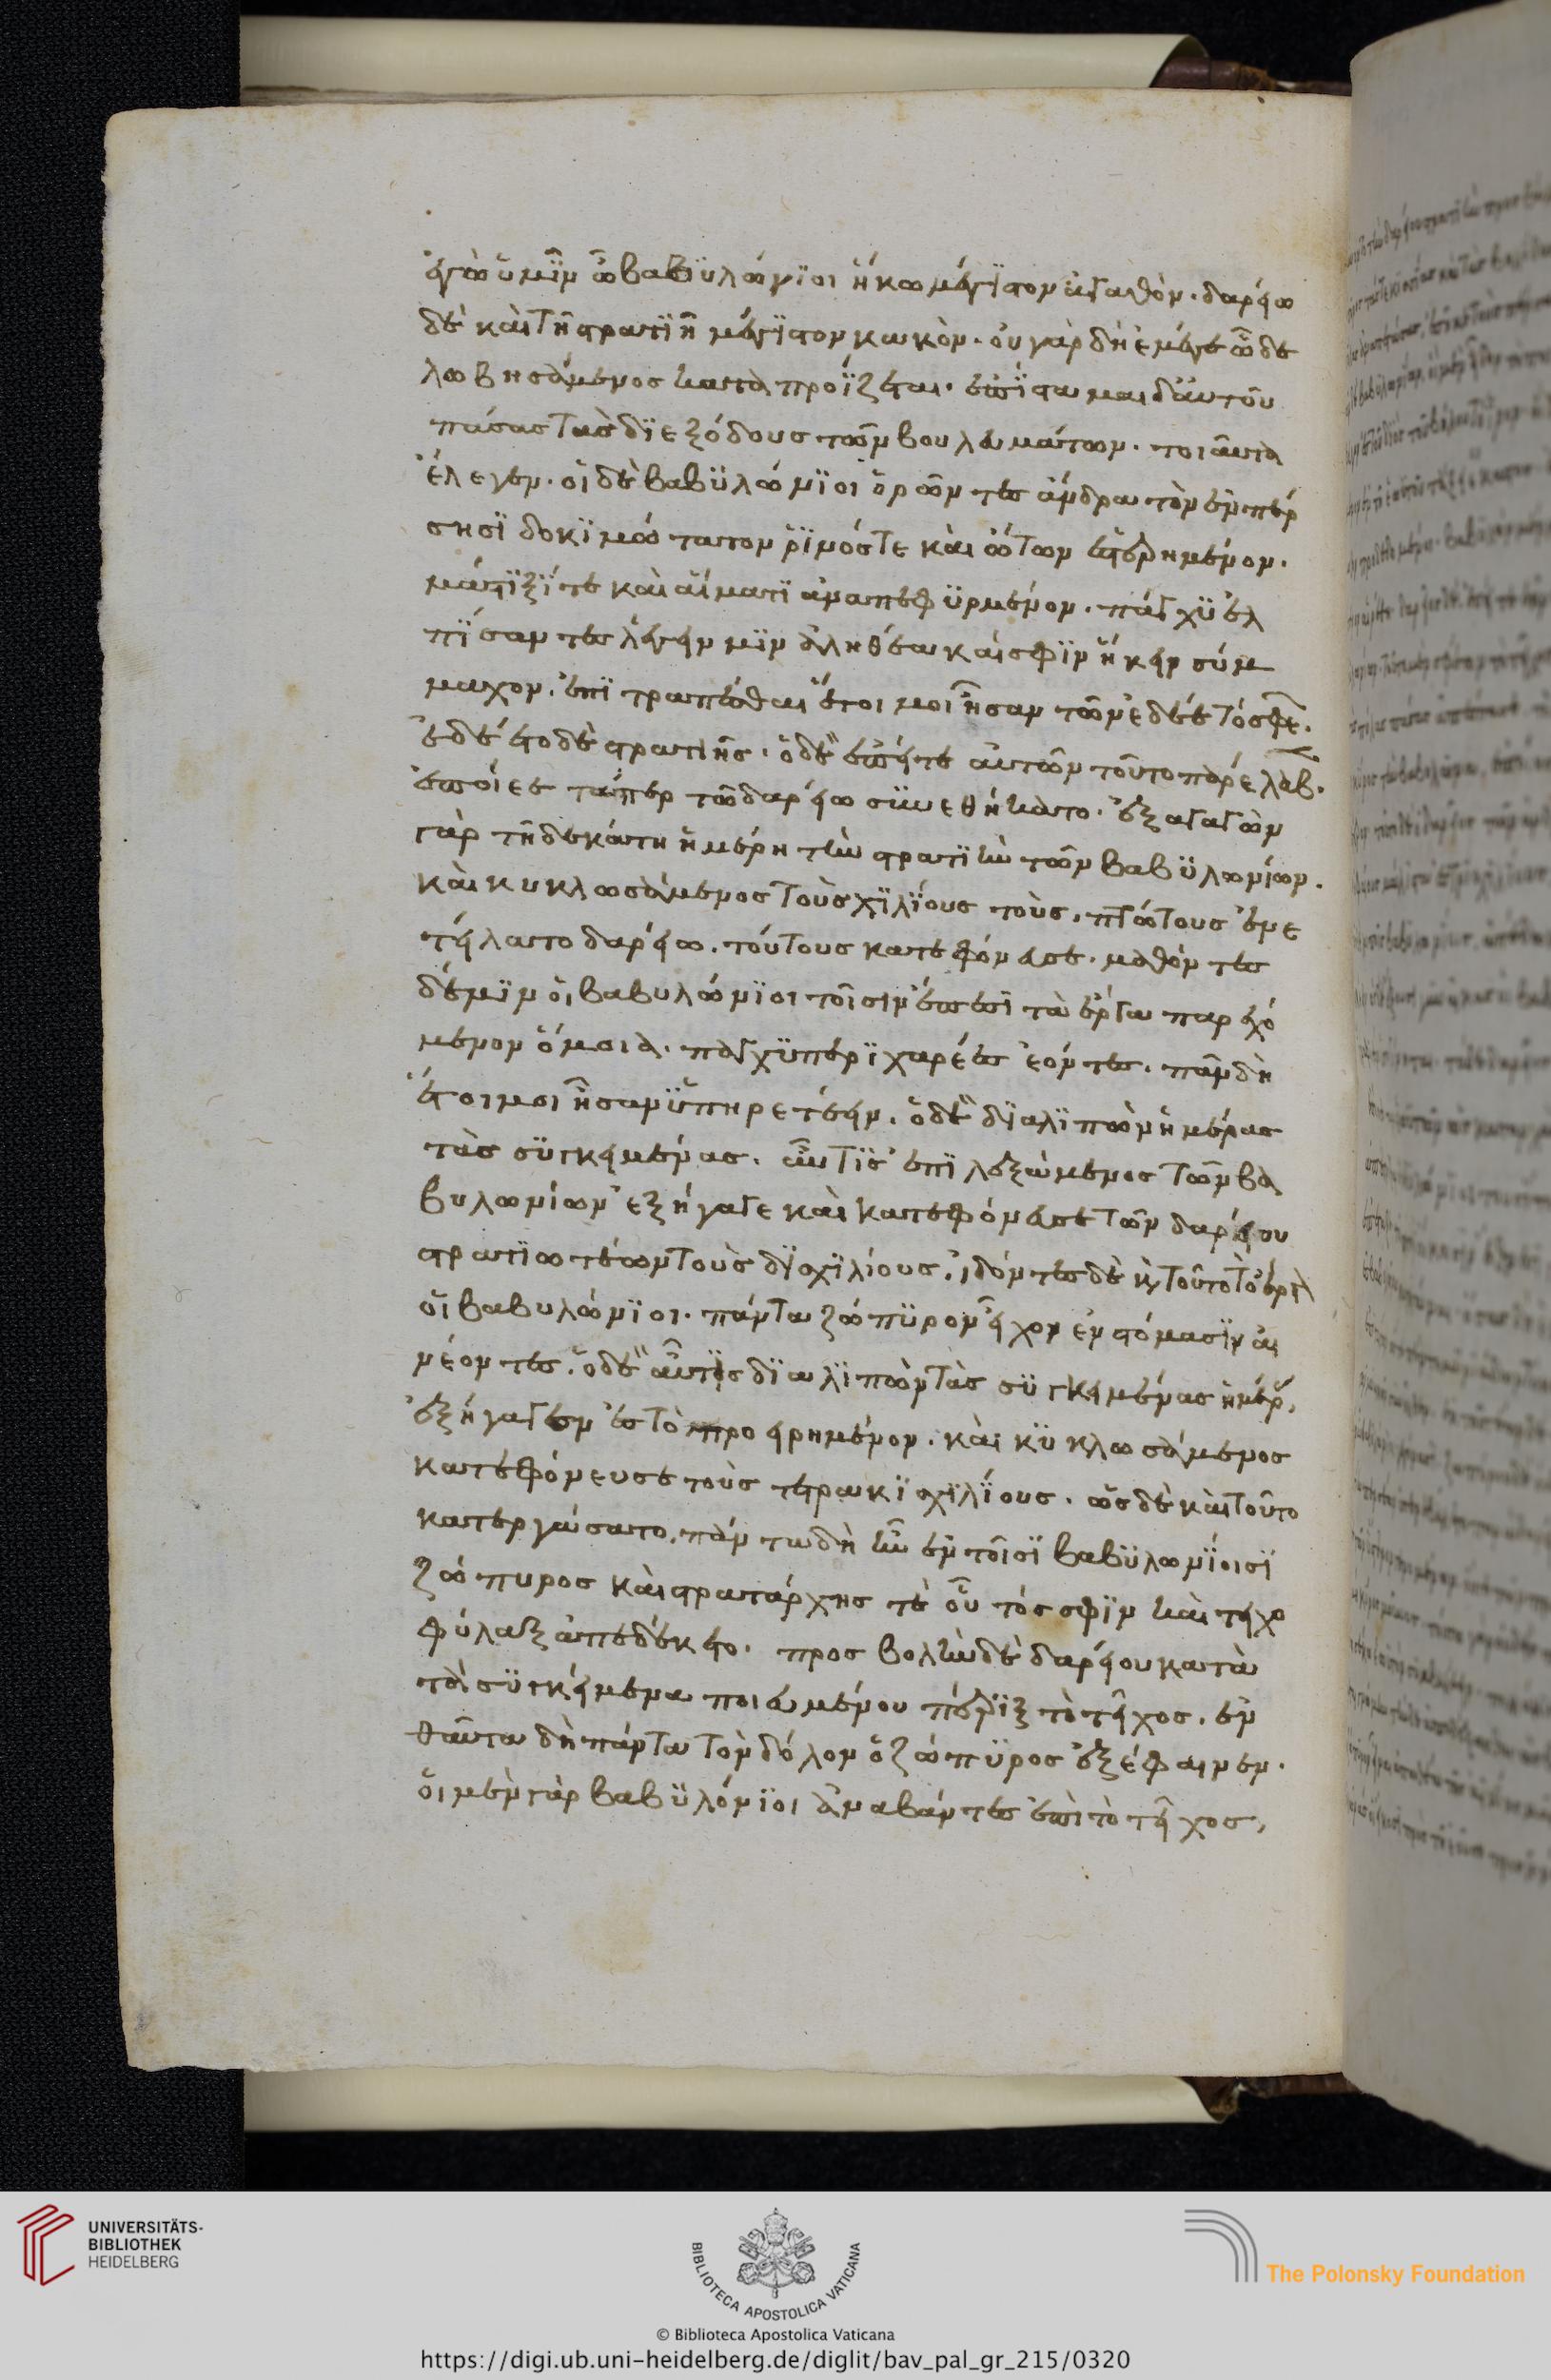 ἐγὼ ὑμῖν ὦ βαβϋλώνϊοι ἥκω μέγϊστον ἀγαθόν· δαρείω
δὲ καὶ τῆ στρατιῆ μέγϊστον κακὸν· οὐ γὰρ δὴ ἐμέγε ὧδε
λωβησάμενος καταπροΐξεται· ἐπίσταμαι δ᾽ αὐτοῦ
πάσας τὰς διεξόδους τῶν βουλευμάτων· τοιαῦτα
ἔλεγεν· οἱ δὲ βαβϋλώνϊοι ὁρῶντες ἄνδρα τὸν ἐν πέρ
σησϊ δοκϊμώτατον ῥϊνόστε καὶ ὤτων ἐστερημένον·
μάστϊξί τε καὶ αἵματϊ ἀναπεφϋρμένον· πάγχϋ ἐλ
πΐσαντες λέγειν μϊν ἀληθέα καὶ σφϊν ἥκειν σύμ
μαχον· ἐπϊτραπέσθαι ἕτοιμοι ἦσαν τῶν ἐδέετό σφε·
ἐδέετο δὲ στρατιῆς· ὁ δὲ ἐπείτε αὐτῶν τοῦτο παρέλαβ·
ἐποίεε τάπερ τῶ δαρείω συνεθήκατο· ἐξαγαγὼν
γὰρ τῆ δεκάτη ἡμέρη τὴν στρατϊὴν τῶν βαβϋλωνίων·
καὶ κυκλωσάμενος τοὺς χϊλΐους τοὺς, πρώτους ἐνε
τείλατο δαρείω· τούτους κατεφόνευσε· μαθόντες
δέ μϊν οἱ βαβυλώνϊοι τοῖσιν ἔπεσϊ τὰ ἔργα παρεχό
μενον ὅμοια· παγχϋ περϊχαρέες ἐόντες· πᾶν δὴ
ἕτοιμοι ἦσαν ὑπηρετέειν· ὁ δὲ δϊαλϊπὼν ἡμέρας
τὰς συγκειμένας· αὖτϊς ἐπϊλεξάμενος τῶν βα
βυλωνίων ἐξήγαγε καὶ κατεφόνευσε τῶν δαρείου
στρατϊωτέων τοὺς δϊσχϊλίους· ἰδόντες δὲ καὶ τοῦτο τὸ ἔργον
οἱ βαβυλώνϊοι· πάντα ζώπϋρον εἶχον ἐν στόμασϊν αἰ
νέοντες· ὁ δὲ αὖτϊς δϊαλϊπὼν τὰς συγκειμένας ἡμέρ·
ἐξήγαγεν ἐς τὸ προειρημένον· καὶ κϋκλωσάμενος
κατεφόνευσε τοὺς τετρακϊσχϊλΐους· ὡς δὲ καὶ τοῦτο
κατεργάσατο· πάντα δὴ ἦν ἐν τοῖσϊ βαβϋλωνΐοισϊ
ζώπυρος καὶ στρατάρχης τὲ οὗτός σφϊν καὶ τειχο
φύλαξ ἀπεδέκετο· προσβολὴν δὲ δαρείου κατὰ
τὰ συγκείμενα ποιευμένου πέρϊξ τὸ τεῖχος· ἐν
θαῦτα δὴ πάντα τὸν δόλον ὁ ζώπϋρος ἐξέφαινεν·
οἱ μὲν γὰρ βαβϋλόνϊοι ἀναβάντες ἐπὶ τὸ τεῖχος,
UNIVERSITÄTS-
BIBLIOTHEK
HEIDELBERG
BIBLIOTECA APOSTOLICA VATICANA
The Polonsky Foundation
© Biblioteca Apostolica Vaticana
https://digi.ub.uni-heidelberg.de/diglit/bav_pal_gr_215/0320